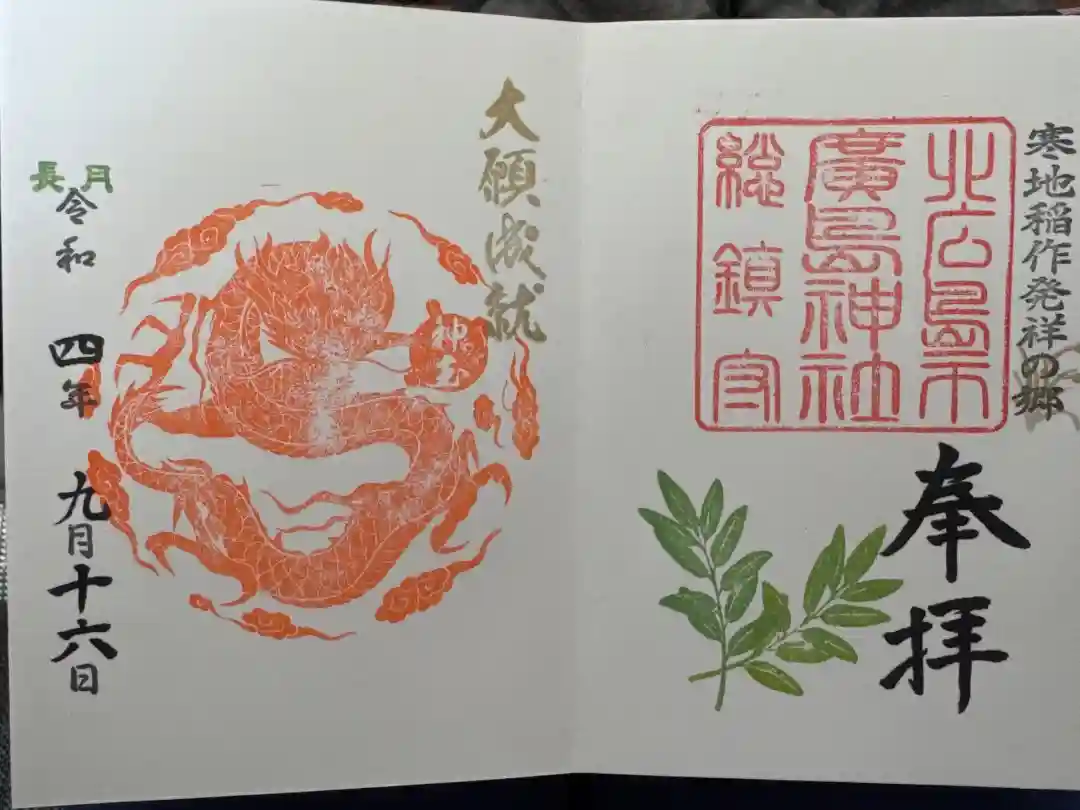 寒地稲作発祥の郷
北広島市
廣島神社
総鎮守
奉拝
大願成就
神玉
長月
令和四年九月十六日